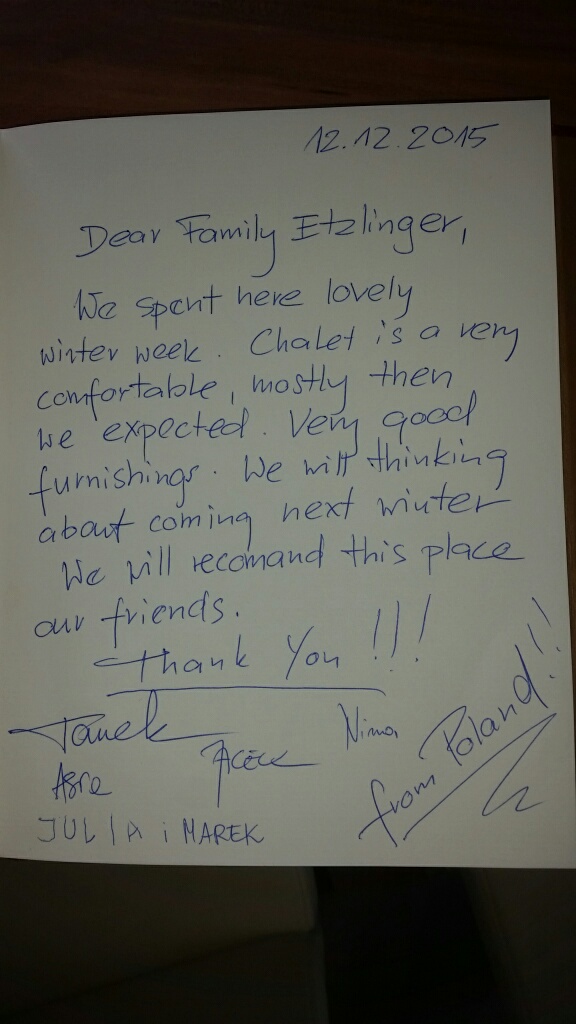 12.12.2015
Dear Family Etzlinger,
We spent here lovely
winter week. Chalet is a very
comfortable, mostly then
we expected. Very good
furnishings. We will thinking
about coming next winter
We will recomand this place
our friends.
Thank You !!!
Janek
Nina
from Poland!!
JULIA i MAREK